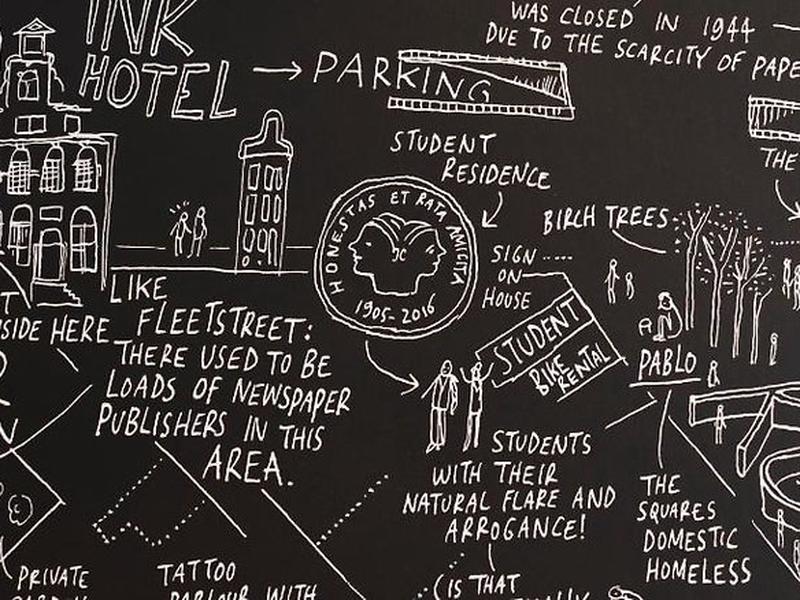 INK
HOTEL
PARKING
WAS CLOSED IN 1944
DUE TO THE SCARCITY OF PAPE
THE
STUDENT
RESIDENCE
HONESTAS ET RATA AMICITA
JC
1905-2016
BIRCH TREES
SIGN
ON
HOUSE
STUDENT
BIKE RENTAL
PABLO
SIDE HERE
LIKE
FLEETSTREET:
THERE USED TO BE
LOADS OF NEWSPAPER
PUBLISHERS IN THIS
AREA.
STUDENTS
WITH THEIR
NATURAL FLARE AND
ARROGANCE!
(IS THAT
THE
SQUARES
DOMESTIC
HOMELESS
PRIVATE
TATTOO
PARLOUR WITH